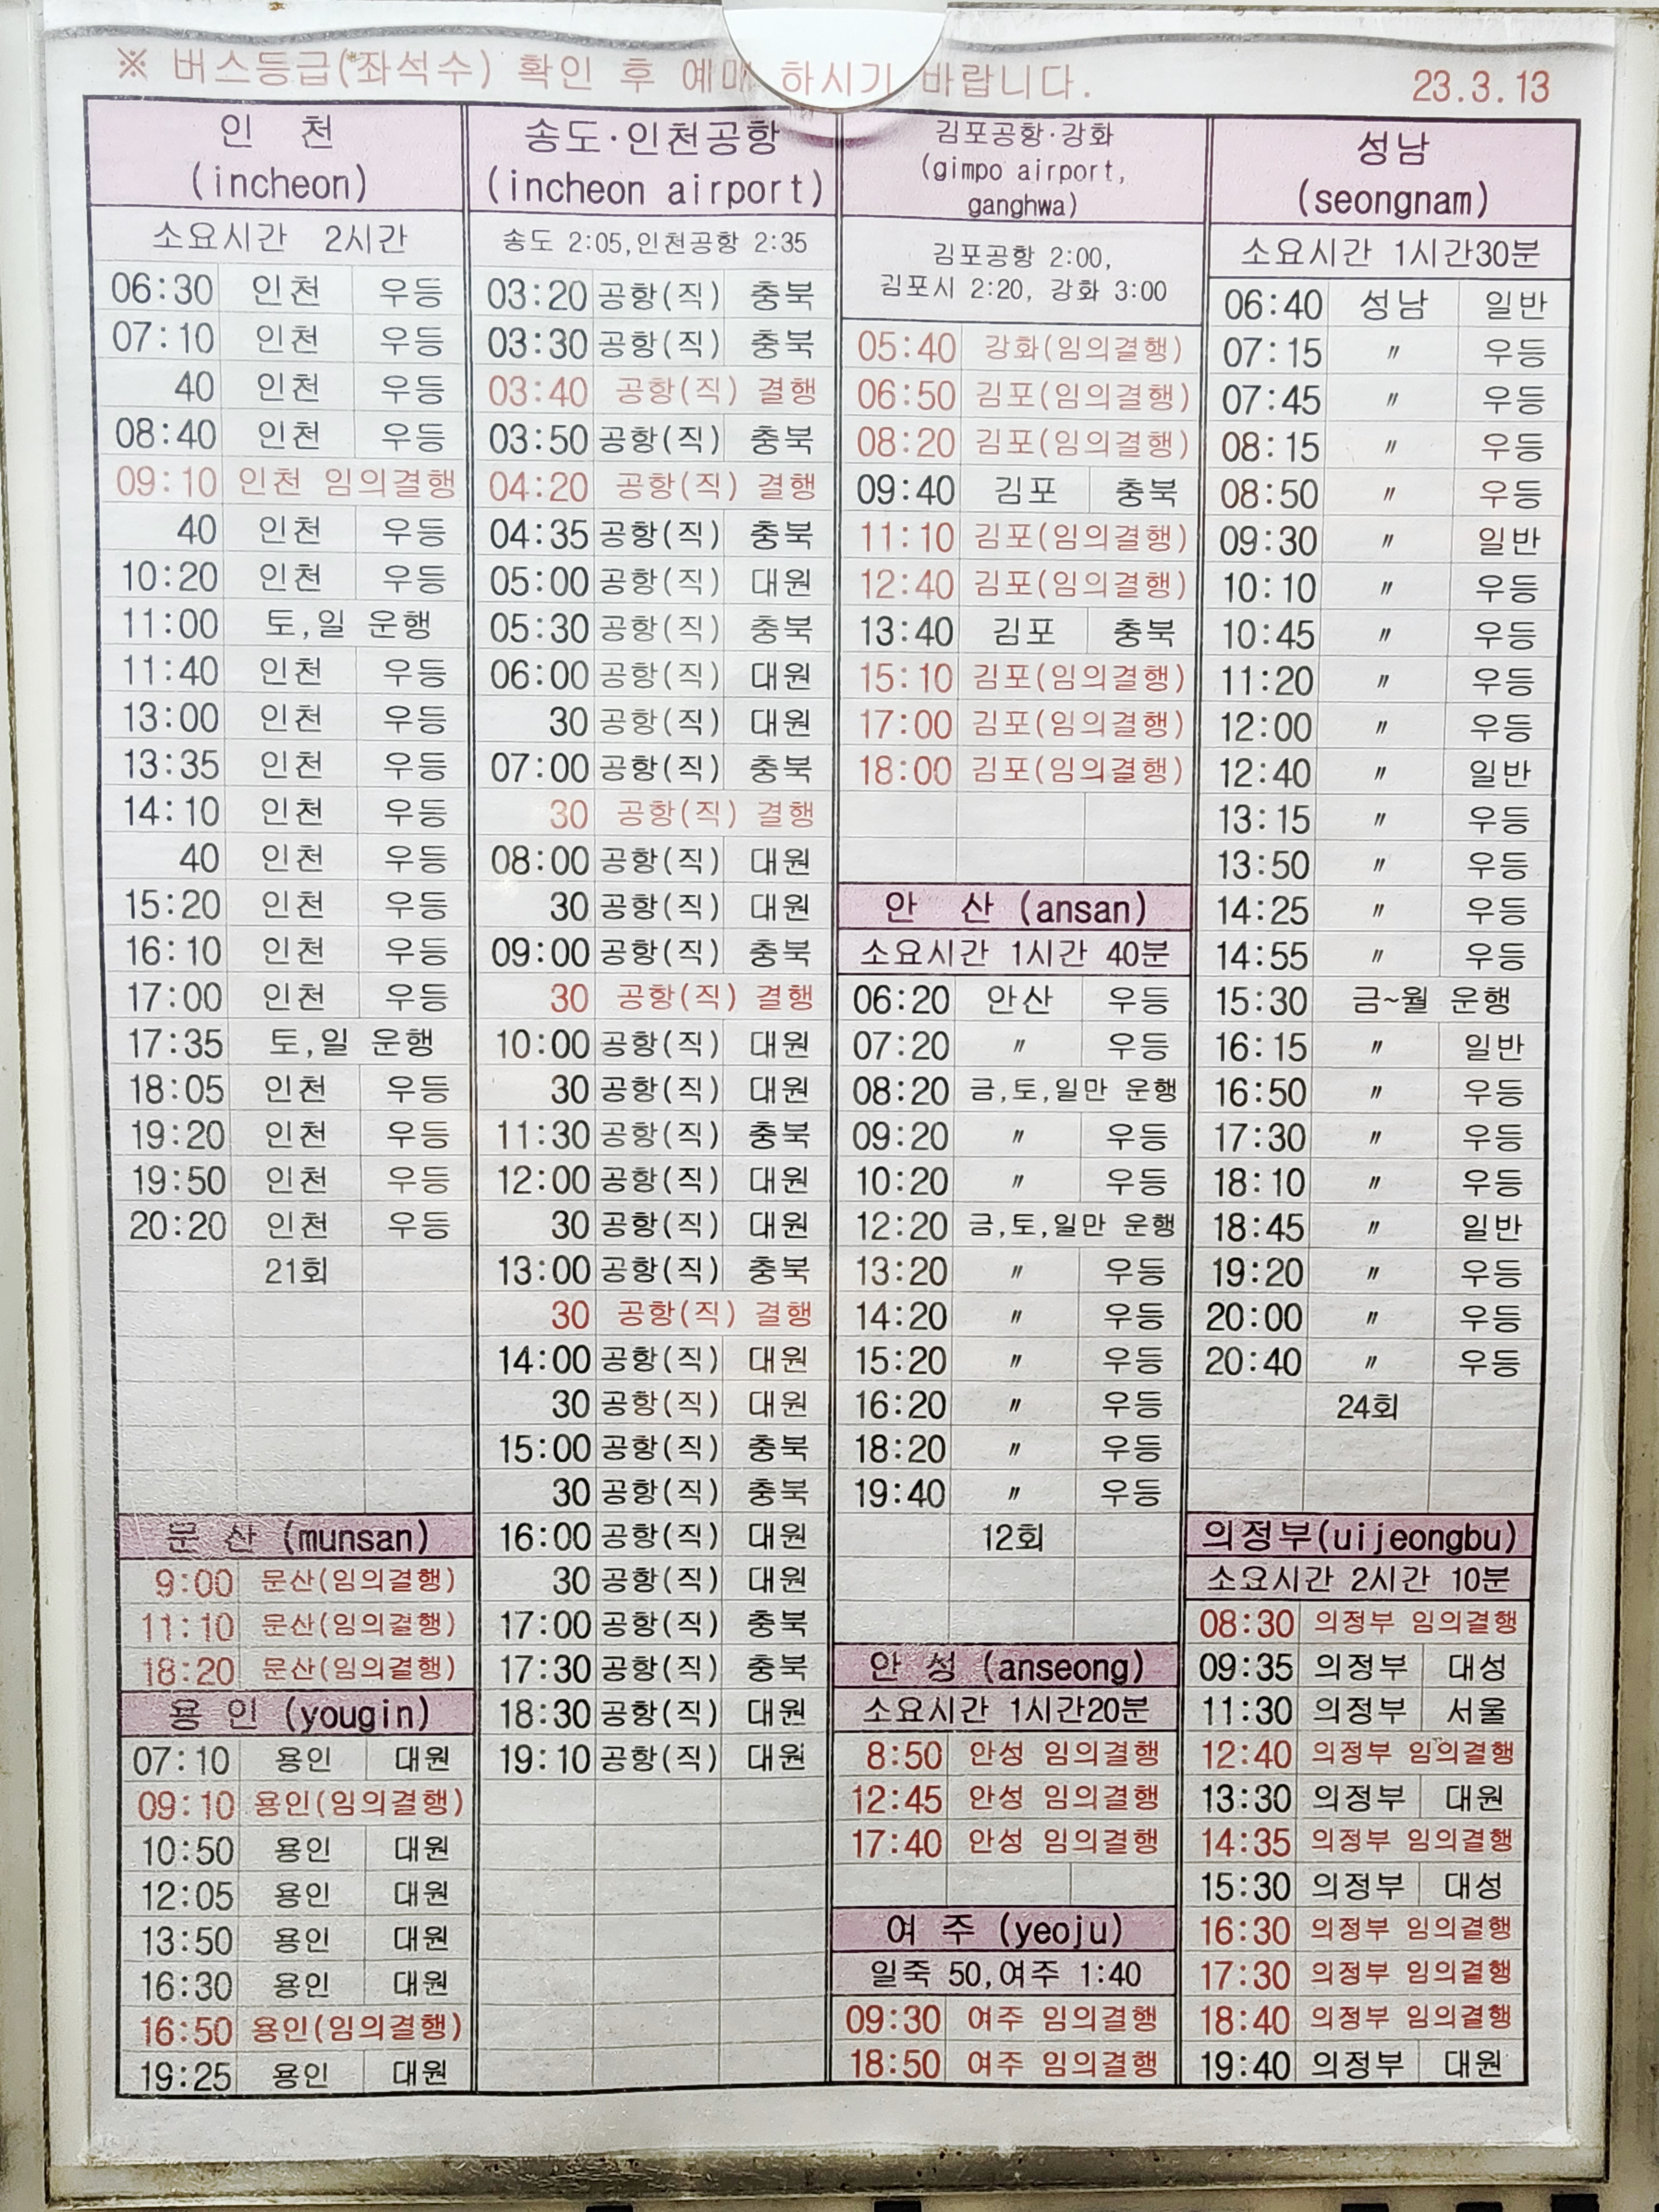 ※ 버스등급(좌석수) 확인 후 예매 하시기 바랍니다.
23.3.13
인 천
(incheon)
소요시간 2시간
06:30 인천 우등
07:10 인천 우등
40 인천 우등
08:40 인천 우등
09:10 인천 임의결행
40 인천 우등
10:20 인천 우등
11:00 토,일 운행
11:40 인천 우등
13:00 인천 우등
13:35 인천 우등
14:10 인천 우등
40 인천 우등
15:20 인천 우등
16:10 인천 우등
17:00 인천 우등
17:35 토,일 운행
18:05 인천 우등
19:20 인천 우등
19:50 인천 우등
20:20 인천 우등
21회
문 산 (munsan)
9:00 문산(임의결행)
11:10 문산(임의결행)
18:20 문산(임의결행)
용 인 (yougin)
07:10 용인 대원
09:10 용인(임의결행)
10:50 용인 대원
12:05 용인 대원
13:50 용인 대원
16:30 용인 대원
16:50 용인(임의결행)
19:25 용인 대원
송도·인천공항
(incheon airport)
송도 2:05,인천공항 2:35
03:20 공항(직) 충북
03:30 공항(직) 충북
03:40 공항(직) 결행
03:50 공항(직) 충북
04:20 공항(직) 결행
04:35 공항(직) 충북
05:00 공항(직) 대원
05:30 공항(직) 충북
06:00 공항(직) 대원
30 공항(직) 대원
07:00 공항(직) 충북
30 공항(직) 결행
08:00 공항(직) 대원
30 공항(직) 대원
09:00 공항(직) 충북
30 공항(직) 결행
10:00 공항(직) 대원
30 공항(직) 대원
11:30 공항(직) 충북
12:00 공항(직) 대원
30 공항(직) 대원
13:00 공항(직) 충북
30 공항(직) 결행
14:00 공항(직) 대원
30 공항(직) 대원
15:00 공항(직) 충북
30 공항(직) 충북
16:00 공항(직) 대원
30 공항(직) 대원
17:00 공항(직) 충북
17:30 공항(직) 충북
18:30 공항(직) 대원
19:10 공항(직) 대원
김포공항·강화
(gimpo airport,
ganghwa)
김포공항 2:00,
김포시 2:20, 강화 3:00
05:40 강화(임의결행)
06:50 김포(임의결행)
08:20 김포(임의결행)
09:40 김포 충북
11:10 김포(임의결행)
12:40 김포(임의결행)
13:40 김포 충북
15:10 김포(임의결행)
17:00 김포(임의결행)
18:00 김포(임의결행)
안 산 (ansan)
소요시간 1시간 40분
06:20 안산 우등
07:20 〃 우등
08:20 금,토,일만 운행
09:20 〃 우등
10:20 〃 우등
12:20 금,토,일만 운행
13:20 〃 우등
14:20 〃 우등
15:20 〃 우등
16:20 〃 우등
18:20 〃 우등
19:40 〃 우등
12회
안 성 (anseong)
소요시간 1시간20분
8:50 안성 임의결행
12:45 안성 임의결행
17:40 안성 임의결행
여 주 (yeoju)
일죽 50,여주 1:40
09:30 여주 임의결행
18:50 여주 임의결행
성남
(seongnam)
소요시간 1시간30분
06:40 성남 일반
07:15 〃 우등
07:45 〃 우등
08:15 〃 우등
08:50 〃 우등
09:30 〃 일반
10:10 〃 우등
10:45 〃 우등
11:20 〃 우등
12:00 〃 우등
12:40 〃 일반
13:15 〃 우등
13:50 〃 우등
14:25 〃 우등
14:55 〃 우등
15:30 금~월 운행
16:15 〃 일반
16:50 〃 우등
17:30 〃 우등
18:10 〃 우등
18:45 〃 일반
19:20 〃 우등
20:00 〃 우등
20:40 〃 우등
24회
의정부(uijeongbu)
소요시간 2시간 10분
08:30 의정부 임의결행
09:35 의정부 대성
11:30 의정부 서울
12:40 의정부 임의결행
13:30 의정부 대원
14:35 의정부 임의결행
15:30 의정부 대성
16:30 의정부 임의결행
17:30 의정부 임의결행
18:40 의정부 임의결행
19:40 의정부 대원